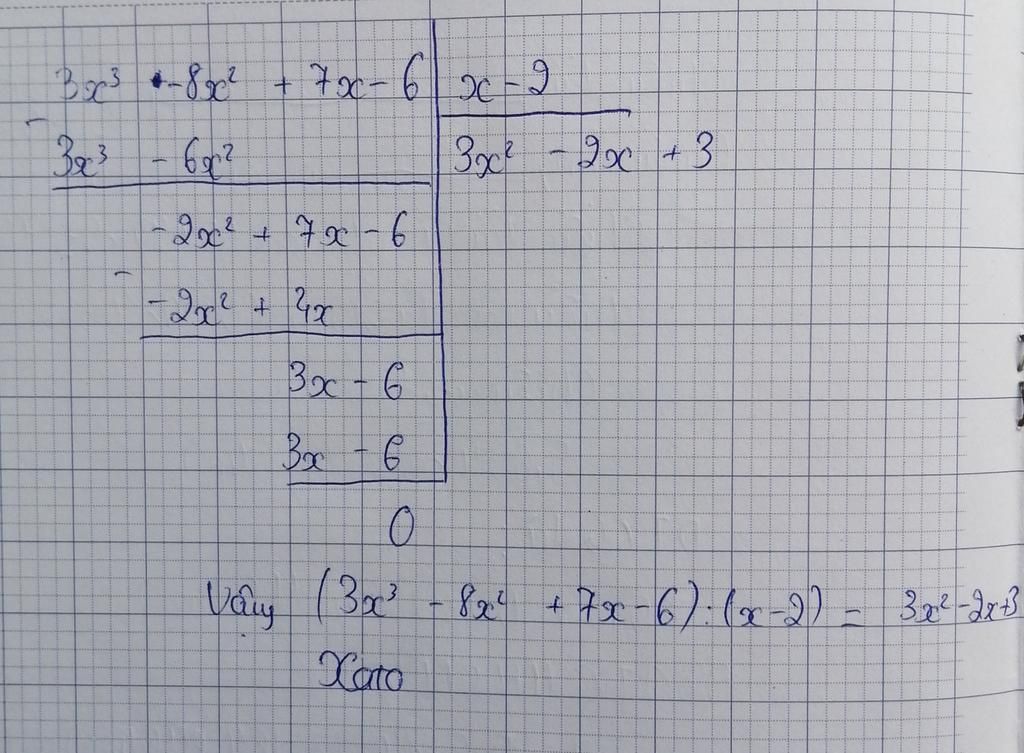 3x³ - 8x² + 7x - 6 | x - 2
- 3x³ - 6x² | 3x² - 2x + 3
-2x² + 7x - 6
- -2x² + 4x
3x - 6
3x - 6
0
Vậy (3x³ - 8x² + 7x - 6) : (x - 2) = 3x² - 2x + 3